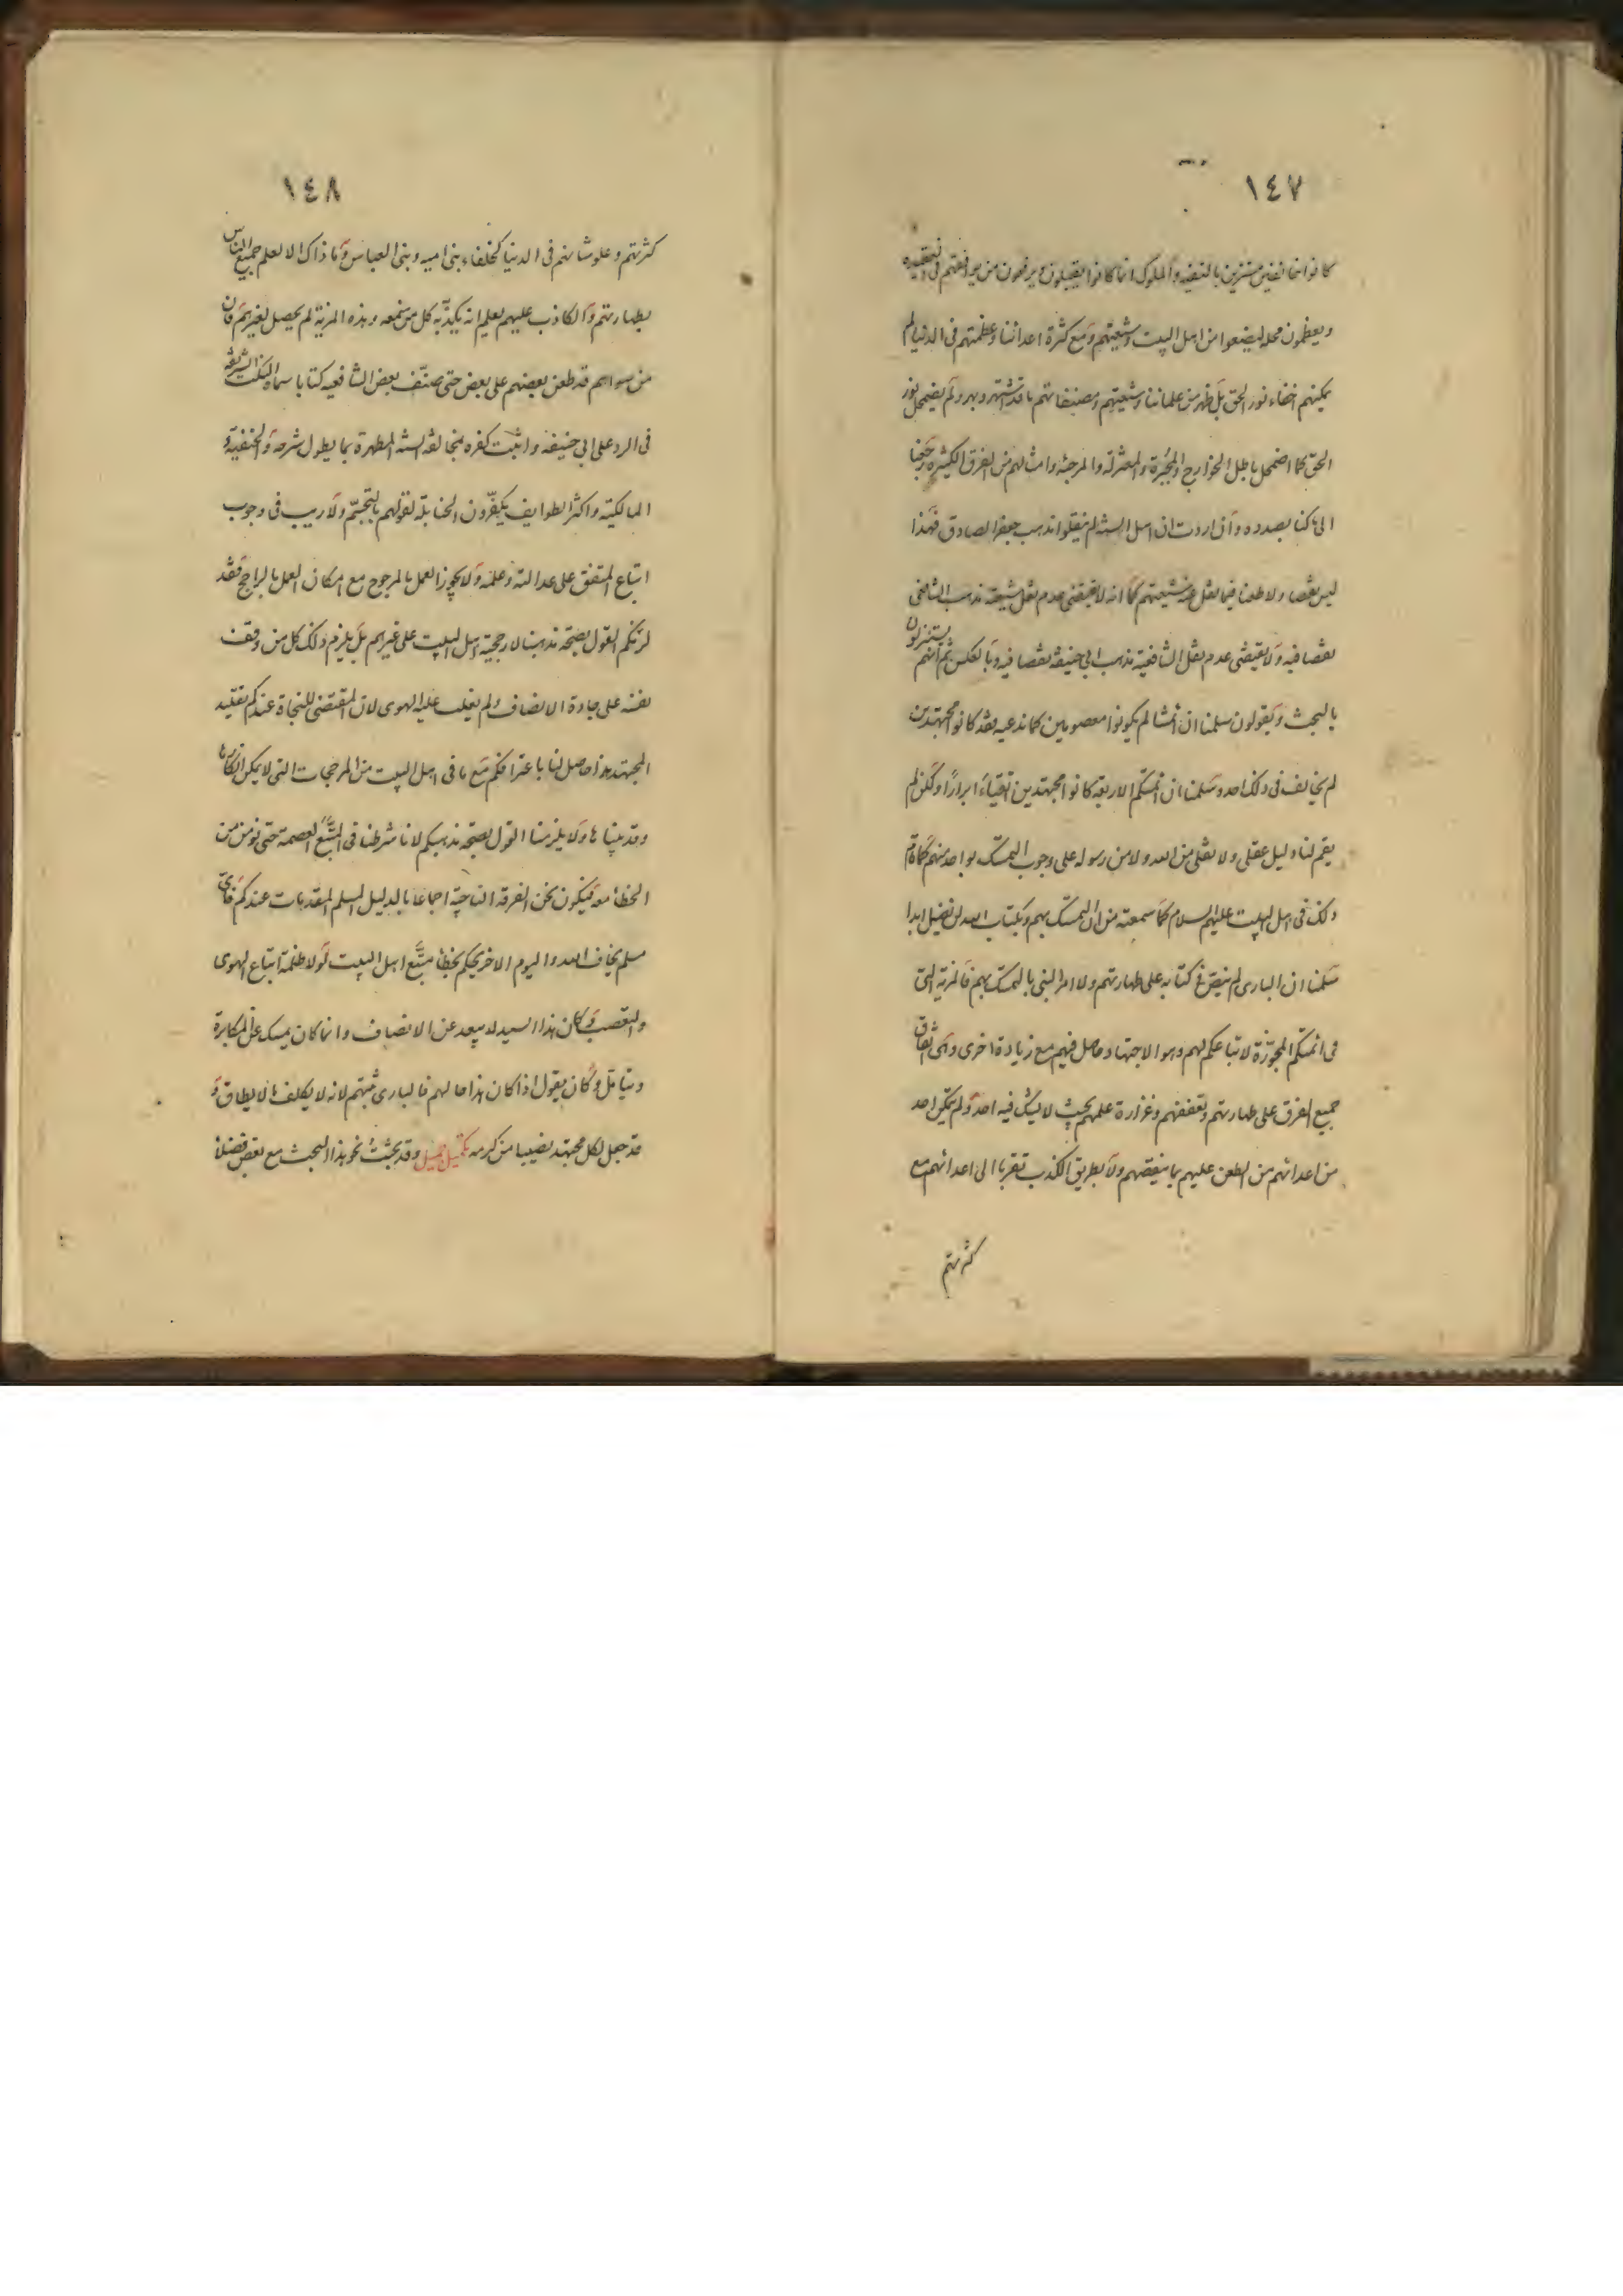 ١٤٧
كانوا خائفين مستترين بالتقيه والملوك انما كانوا يقبلون ويرفعون من يوافقهم فى العقيده
ويعظمون محله ليضعوا من اهل البيت وشيعتهم ومع كثرة اعدائنا وعظمتهم فى الدنيا لم
يمكنهم اخفاء نور الحق بل ظهر من علمائنا وشيعتهم ومصنفاتهم ما قد اشتهر وبهر ولم يضمحل نور
الحق كما اضمحل باطل الخوارج والمجبرة والمعتزله والمرجئه وامثالهم من الفرق الكثيره رجعنا
الى ما كنا بصدده وان اردت ان اهل السنه لم ينقلوا مذهب جعفر الصادق فهذا
ليس نقصا ولا طعنا فيما نقل عنه شيعتهم كما انه لا يقتضى عدم نقل شيعته مذهب الشافعى
نقصا فيه ولا يقتضى عدم نقل الشافعية مذهب ابى حنيفه نقصا فيه وبالعكس ثم انهم يتنزلون
بالبحث ويقولون سلمنا ان ائمتنا لم يكونوا معصومين كما ندعيه فقد كانوا مجتهدين
لم يخالف فى ذلك احد وسلمنا ان ائمتكم الاربعة كانوا مجتهدين اتقياء ابرارا ولكن لم
يقم لنا دليل عقلى ولا نقلى من الله ولا من رسوله على وجوب التمسك بواحد منهم كما قام
ذلك فى اهل البيت عليهم السلام كما سمعته من ان التمسك بهم وبكتاب الله لن يضل ابدا
سلمنا ان البارى لم ينص فى كتابه على طهارتهم ولا امر النبى بالتمسك بهم فالمزية التى
فى ائمتكم المجوزة لاتباعكم لهم وهو الاجتهاد حاصل فيهم مع زيادة اخرى وهى اتفاق
جميع الفرق على طهارتهم وتعففهم وغزارة علمهم بحيث لا يشك فيه احد ولم يتمكن احد
من اعدائهم من الطعن عليهم بما ينقصهم ولا بطريق الكذب تقربا الى اعدائهم مع
كثرتهم
١٤٨
كثرتهم وعلو شانهم فى الدنيا كخلفاء بنى اميه وبنى العباس وما ذاك الا لعلم جميع الناس
بطهارتهم والكاذب عليهم يعلم انه يكذبه كل من سمعه وهذه المزية لم يحصل لغيرهم فان
من سواهم قد طعن بعضهم على بعض حتى صنّف بعض الشافعيه كتابا سماه النكت الشريفه
فى الرد على ابى حنيفه واثبت كفره بمخالفة السنه المطهرة بما يطول شرحه والحنفية و
المالكية واكثر الطوايف يكفّرون الحنابلة لقولهم بالتجسّم ولا ريب فى وجوب
اتباع المتفق على عدالته وعلمه ولا يجوز العمل بالمرجوح مع امكان العمل بالراجح فقد
لزمكم القول بصحة مذهبنا لارجحية اهل البيت على غيرهم بل يلزم ذلك كل من وقف
نفسه على جادة الانصاف ولم يغلب عليه الهوى لان المقتضى للنجاة عندكم تقليد
المجتهد وهذا حاصل لنا باعترافكم مع ما فى اهل البيت من المرجحات التى لا يمكن انكارها
وقد بيناها ولا يلزمنا القول بصحة مذهبكم لانا شرطنا فى المتّبع العصمة حتى نومن من
الخطأ معه فيكون نحن الفرقه الناجيّة اجماعا بالدليل المسلم المقدمات عندكم فاىّ
مسلم يخاف الله واليوم الاخر يحكم بخطأ متّبع اهل البيت لولا ظلمة اتباع الهوى
والتعصب وكان هذا السيد لا يبعد عن الانصاف وانما كان يمسك عن المكابرة
ويتامل وكان يقول اذا كان هذا حالهم فالبارى يثيبهم لانه لا يكلف ما لا يطاق و
قد جعل لكل مجتهد نصيبا من كرمه تكميل جميل وقد بحثت نحو هذا البحث مع بعض فضلا